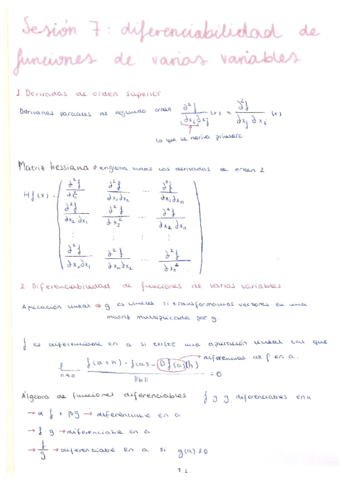 Sesión 7: diferenciabilidad de
funciones de varias variables
1. Derivadas de orden superior
Derivadas parciales de segundo orden ∂²f/∂xi∂xj (x) = ∂²f/∂xj∂xi (x)
lo que se deriva primero
Matriz hessiana → engloba todas las derivadas de orden 2
Hf(x) =
∂²f/∂x1² ∂²f/∂x1∂x2 ... ∂²f/∂x1∂xn
∂²f/∂x2∂x1 ∂²f/∂x2² ... ∂²f/∂x2∂xn
⋮ ⋮ ⋮
∂²f/∂xn∂x1 ∂²f/∂xn∂x2 ... ∂²f/∂xn²
2. Diferenciabilidad de funciones de varias variables
Aplicación lineal → g es lineal si transformamos vectores en una
matriz multiplicada por g.
f es diferenciable en a si existe una aplicación lineal tal que
lim h→0 f(a+h) - f(a) - Df(a)(h) / ||h|| = 0
diferencial de f en a.
Álgebra de funciones diferenciables f y g diferenciables en a
→ α f + βg → diferenciable en a
→ f · g → diferenciable en a
→ f/g → diferenciable en a si g(a) ≠ 0